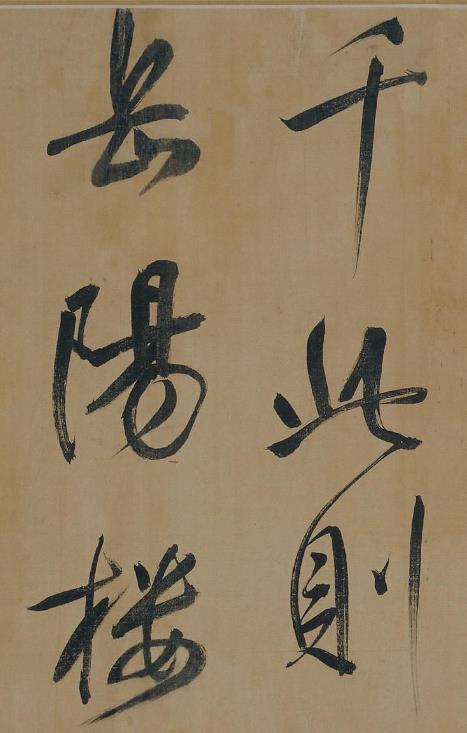 千此則
岳陽樓